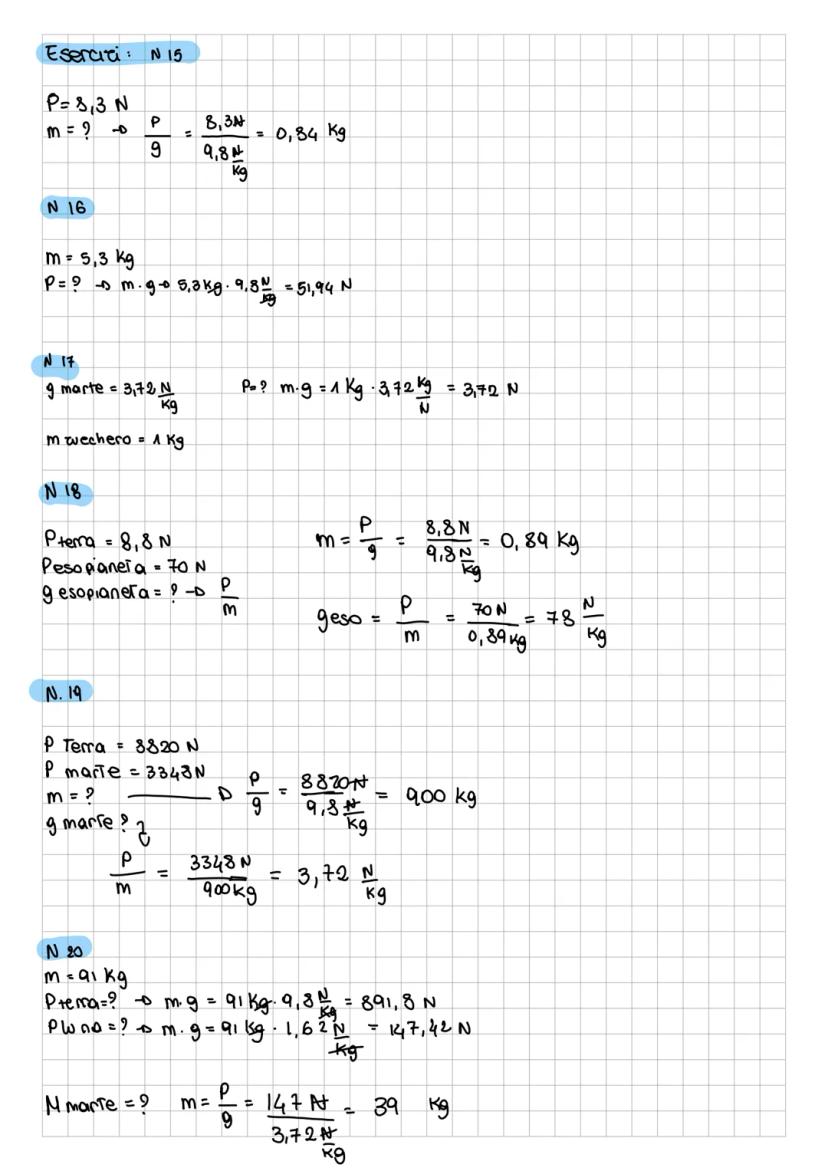 Esercizi: N 15
P = 8,3 N
m = ? → P/g = 8,3N / 9,8 N/Kg = 0,84 Kg
N 16
m = 5,3 Kg
P = ? → m·g → 5,3 Kg · 9,8 N/Kg = 51,94 N
N 17
g marte = 3,72 N/Kg P=? m·g = 1 Kg · 3,72 Kg/N = 3,72 N
m zucchero = 1 Kg
N 18
P terra = 8,8 N m = P/g = 8,8 N / 9,8 N/Kg = 0,89 Kg
P esopianeta = 70 N
g esopianeta = ? → P/m
g eso = P/m = 70 N / 0,89 Kg = 78 N/Kg
N. 19
P Terra = 8820 N
P marte = 3348 N
m = ? → P/g = 8820 N / 9,8 N/Kg = 900 Kg
g marte ?
P/m = 3348 N / 900 Kg = 3,72 N/Kg
N 20
m = 91 Kg
P terra=? → m·g = 91 Kg · 9,8 N/Kg = 891,8 N
P luna =? → m·g = 91 Kg · 1,62 N/Kg = 147,42 N
M marte = ? m = P/g = 147 N / 3,72 N/Kg = 39 Kg